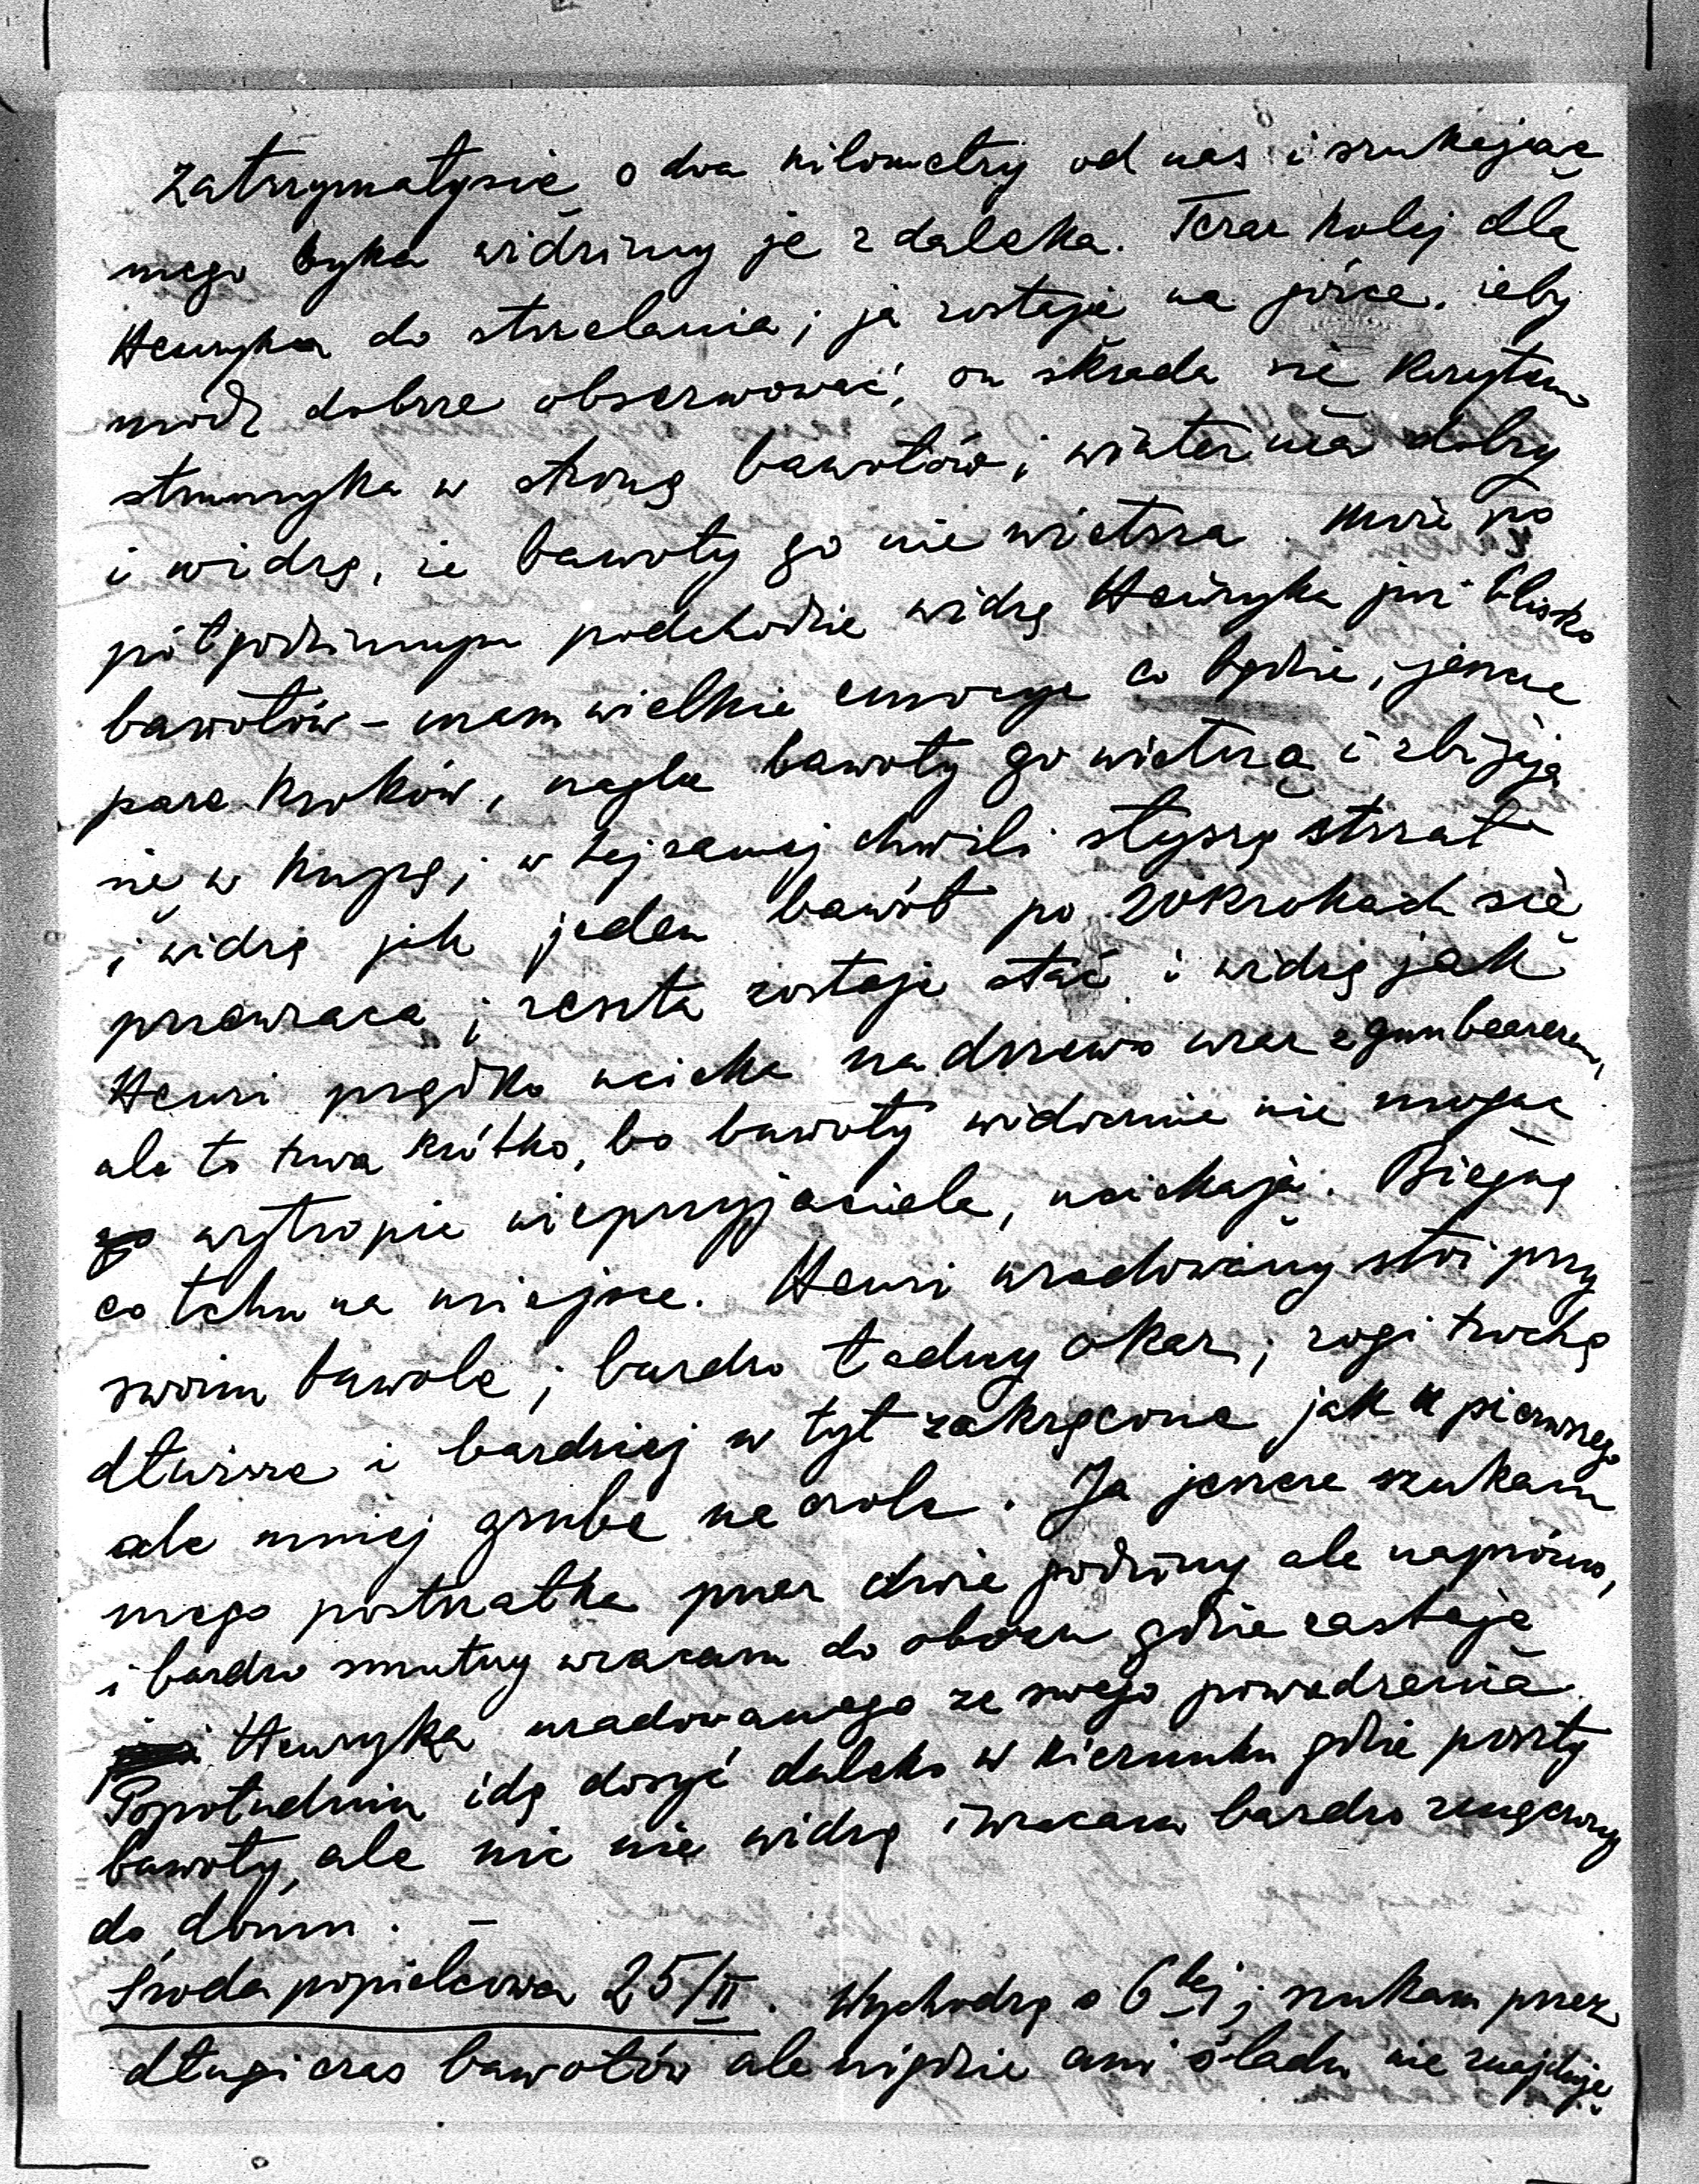 zatrzymały się o dwa kilometry od nas i szukając
mego byka widzimy je z daleka. Teraz kolej dla
Henryka do strzelania; ja zostaję na górce, żeby
módz dobrze obserwować, on skrada się korytem
strumyka w stronę bawołów; wiater ma dobry
i widzę, że bawoły go nie wietrzą. Może po
półgodzinnym podchodzie widzę Henryka już blisko
bawołów – mam wielkie emocye co będzie, jeszcze
parę kroków, nagle bawoły go wietrzą i zbijają
się w kupę; w tej samej chwili słyszę strzał
i widzę jak jeden bawół po 20 krokach się
przewraca; reszta zostaje stać i widzę jak
Henri prędko ucieka na drzewo wraz z gunbearerem,
ale to trwa krótko, bo bawoły widocznie nie mogąc
wytropić nieprzyjaciela, uciekają. Biegnę
co tchu na miejsce. Henri uradowany stoi przy
swoim bawole; bardzo ładny okaz; rogi trochę
dłuższe i bardziej w tył zakręcone jak u pierwszego
ale mniej grube na czole. Ja jeszcze szukam
mego postrzałka przez dwie godziny ale napróżno,
i bardzo smutny wracam do obozu gdzie zastaję
Henryka uradowanego ze swego powodzenia.
Popołudniu idę dosyć daleko w kierunku gdzie poszły
bawoły, ale nic nie widzę i wracam bardzo zmęczony
do domu. –
Środa popielcowa 25/II. Wychodzę o 6tej; szukam przez
długi czas bawołów ale nigdzie ani śladu nie znajduję.